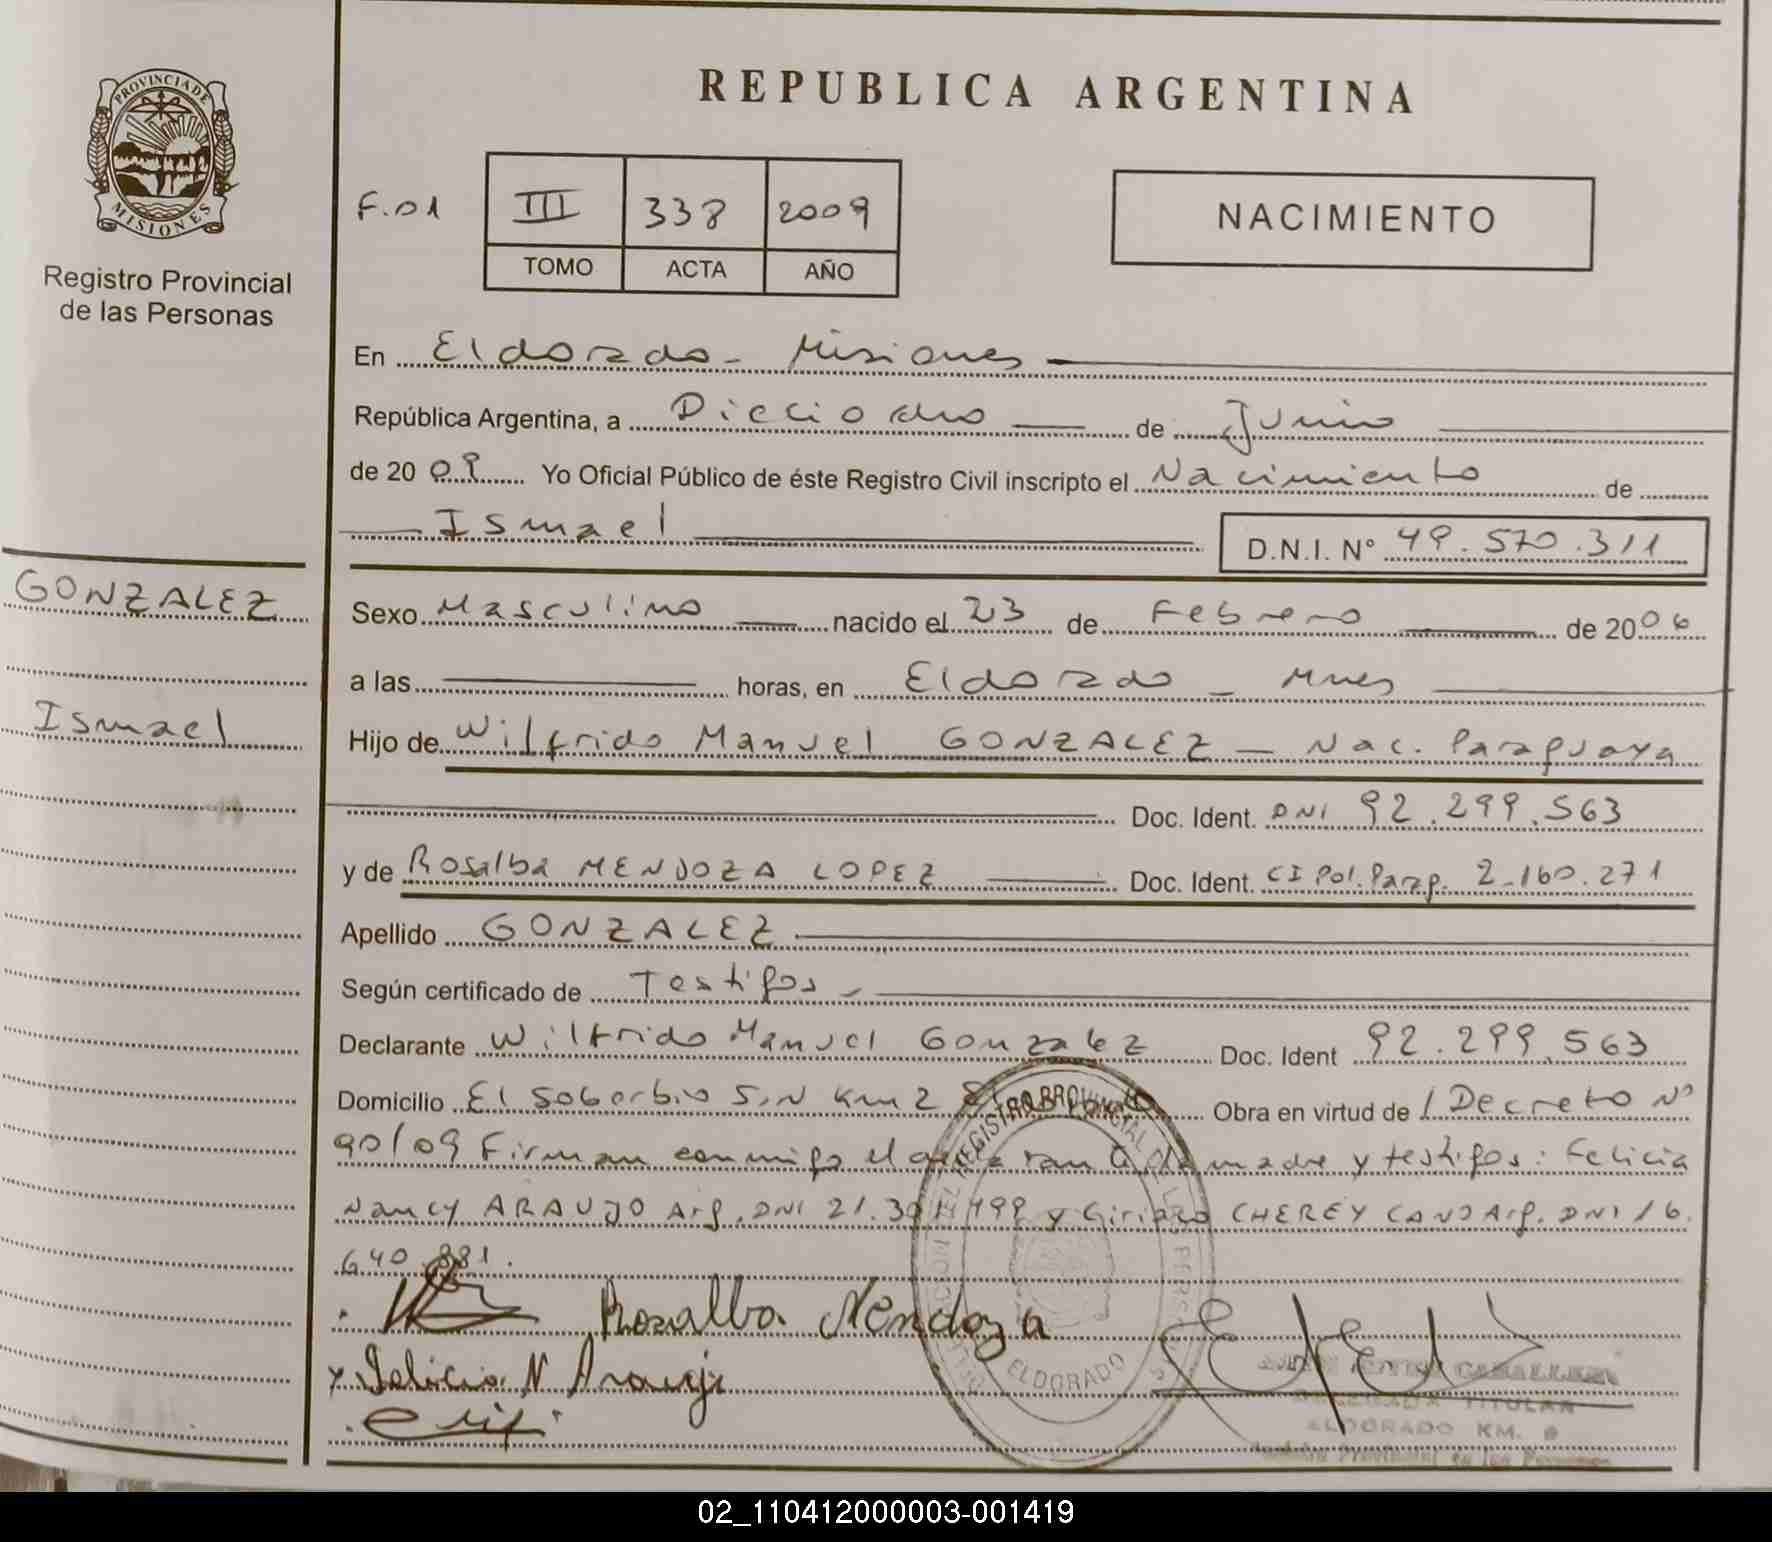 PROVINCIA DE
MISIONES
Registro Provincial
de las Personas
REPUBLICA ARGENTINA
F.01
III 338 2009
TOMO ACTA AÑO
NACIMIENTO
En Eldorado - Misiones
República Argentina, a Dieciocho de Junio
de 20 09 Yo Oficial Público de éste Registro Civil inscripto el Nacimiento de
Ismael D.N.I. N° 49.570.311
GONZALEZ
Ismael
Sexo Masculino nacido el 23 de Febrero de 2006
a las horas, en Eldorado - Mnes
Hijo de Wilfrido Manuel GONZALEZ - Nac. Paraguaya
Doc. Ident. DNI 92.299.563
y de Rosalba MENDOZA LOPEZ Doc. Ident. CI Pol. Parag. 2.160.271
Apellido GONZALEZ
Según certificado de Testigos -
Declarante Wilfrido Manuel Gonzalez Doc. Ident 92.299.563
Domicilio El Soberbio S/N Km 2 Obra en virtud de / Decreto N°
90/09 Firman conmigo el declarante la madre y testigos: Felicia
Nancy ARAUJO Arg. DNI 21.30 499 y Ciriaco CHEREY CANO Arg. DNI 16.
640.881.
Rosalba Mendoza
Felicia N Araujo
REGISTRO PROVINCIAL DE LAS PERSONAS
ELDORADO
CABALLERO
DELEGADA TITULAR
ELDORADO KM. 9
Registro Provincial de las Personas
02_110412000003-001419